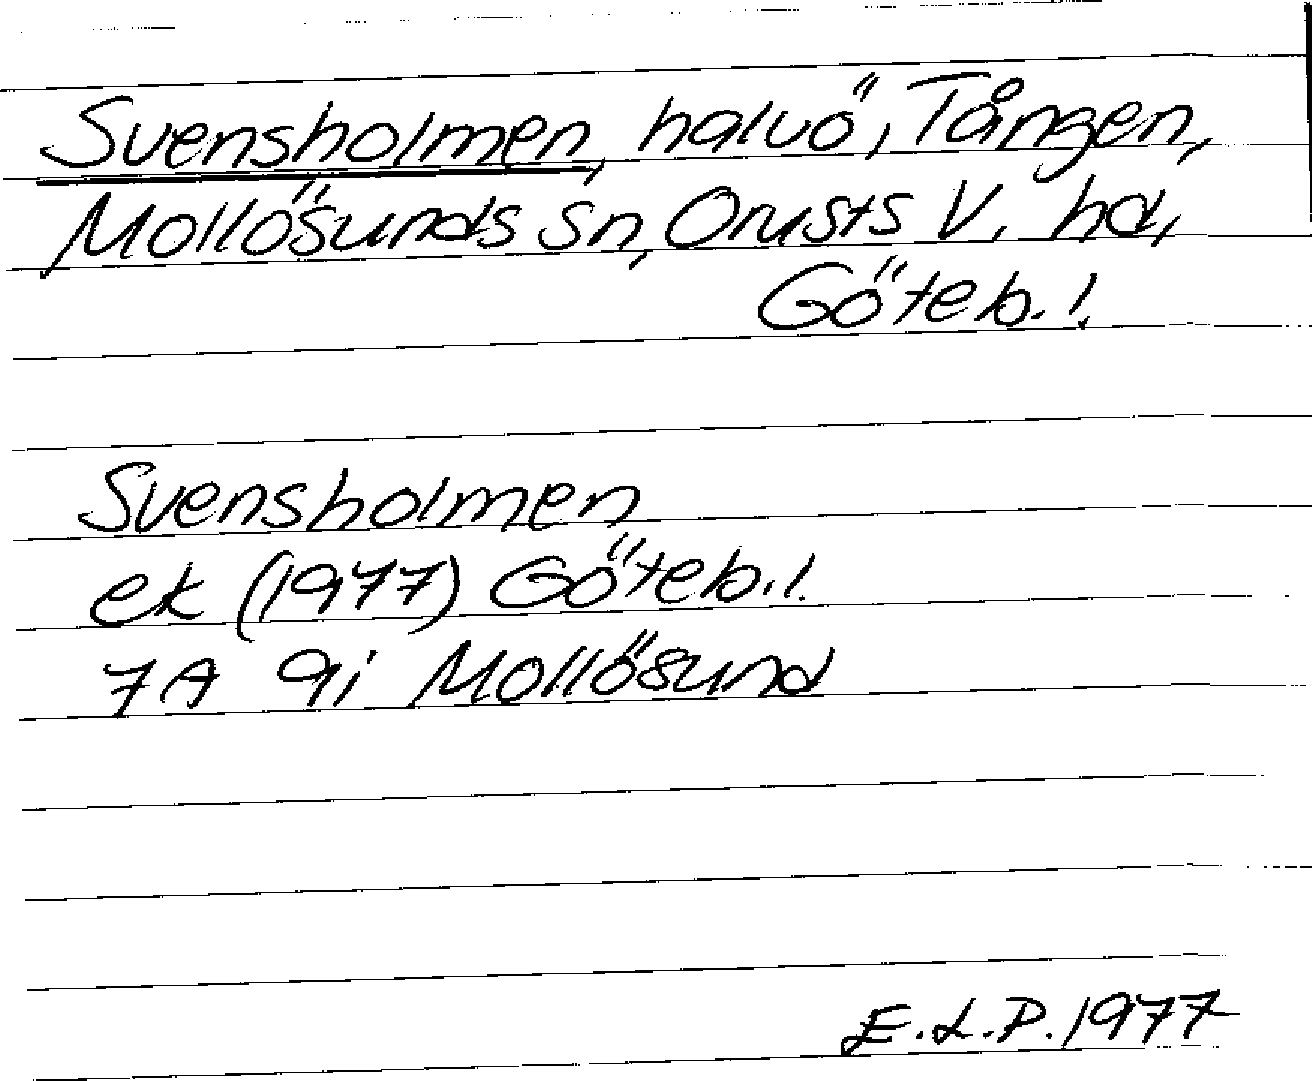 Svensholmen, halvö, Tången,
Mollösunds sn, Orusts V. hd,
Göteb. l.
Svensholmen
ek (1977) Göteb. l.
7A 9i Mollösund
E.L.P. 1977